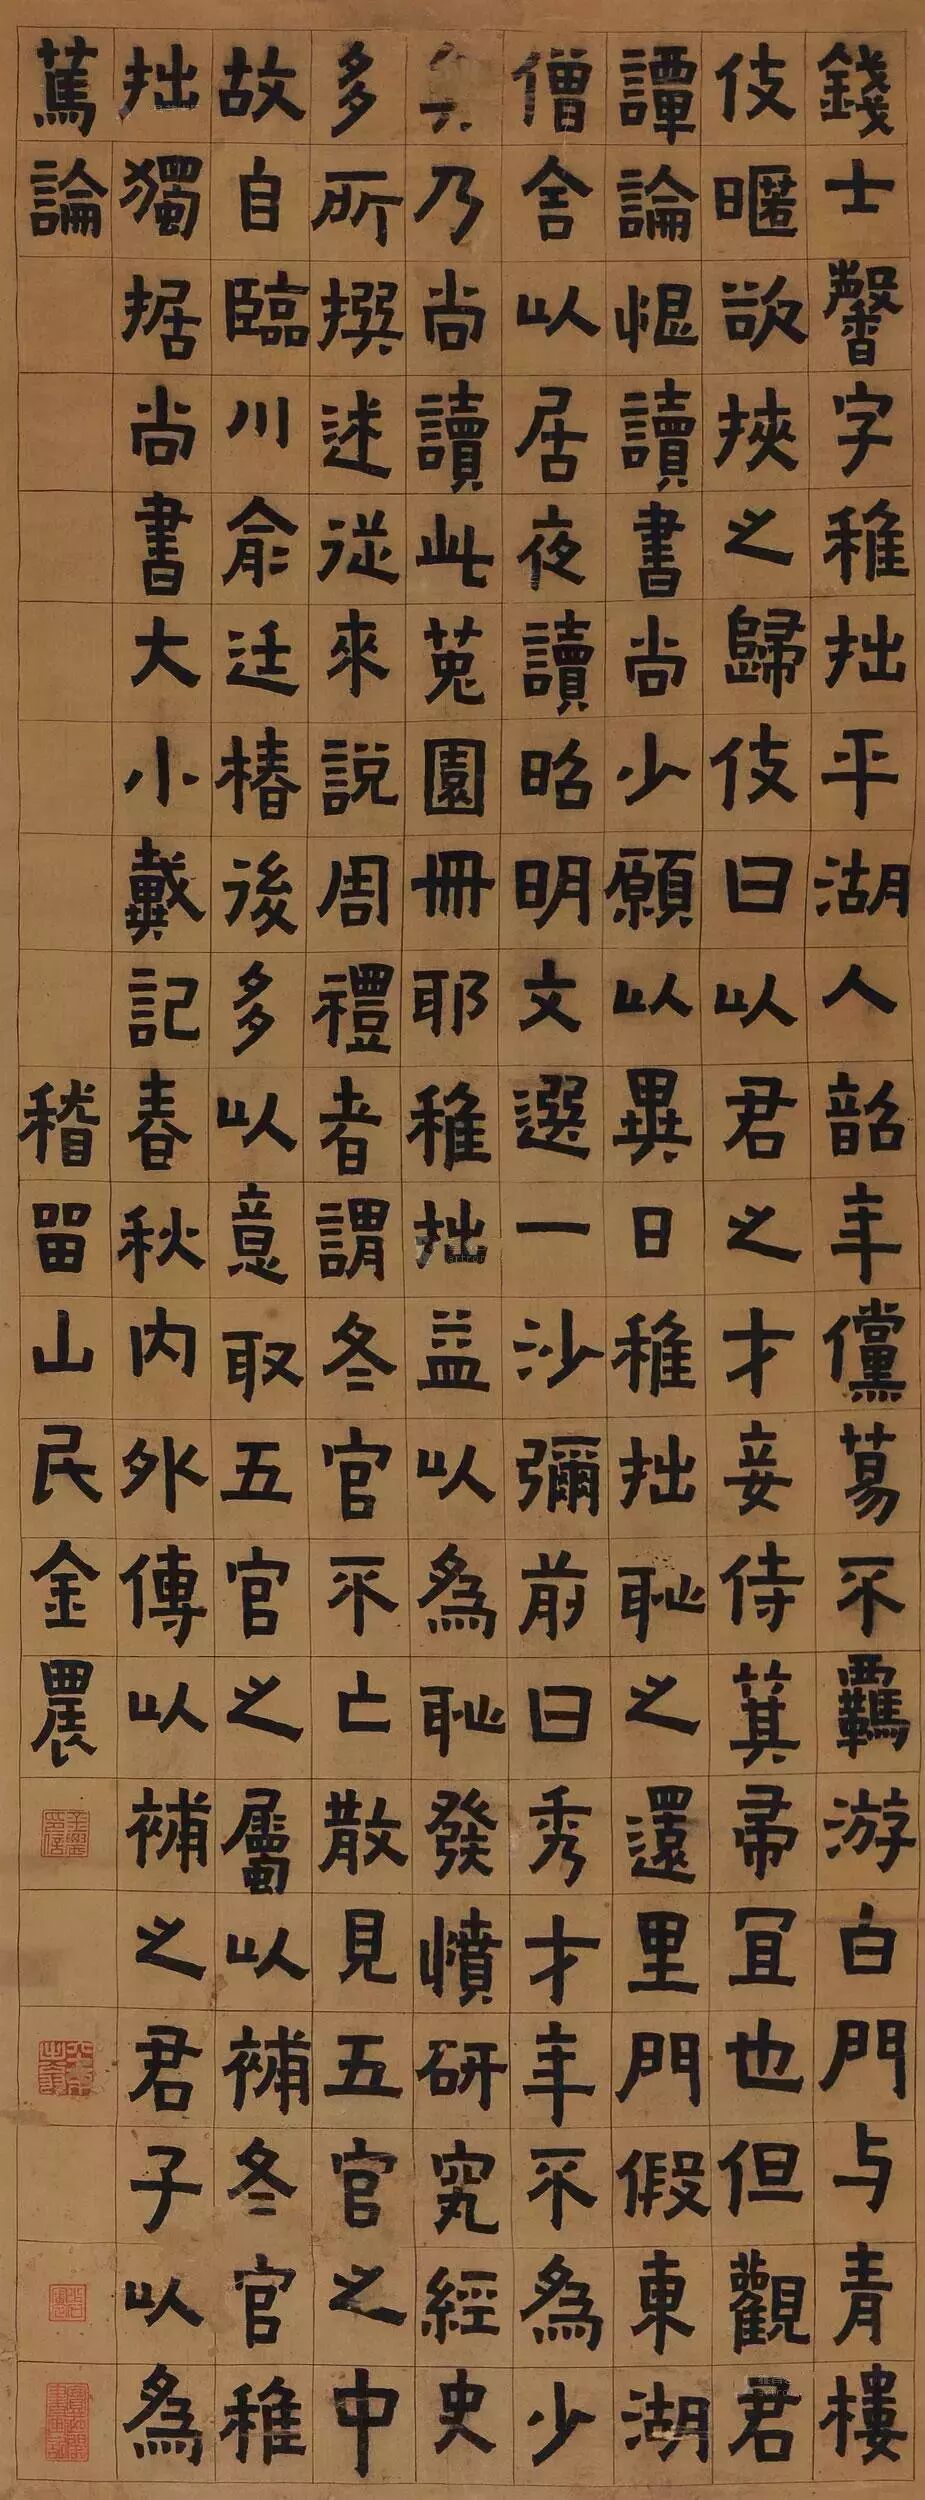 錢士馨字稚拙平湖人韶年儻蕩不羈游白門与青樓
伎暱欲挾之歸伎曰以君之才妾侍箕帚宜也但觀君
譚論悒讀書尚少願以異日稚拙恥之還里門假東湖
僧舍以居夜讀昭明文選一沙彌前曰秀才年不為少
矣乃尚讀此菟園冊耶稚拙益以為恥發憤研究經史
多所撰述從來說周禮者謂冬官不亡散見五官之中
故自臨川俞廷椿後多以意取五官之屬以補冬官稚
拙獨据尚書大小戴記春秋內外傳以補之君子以為
篤論
稽留山民金農